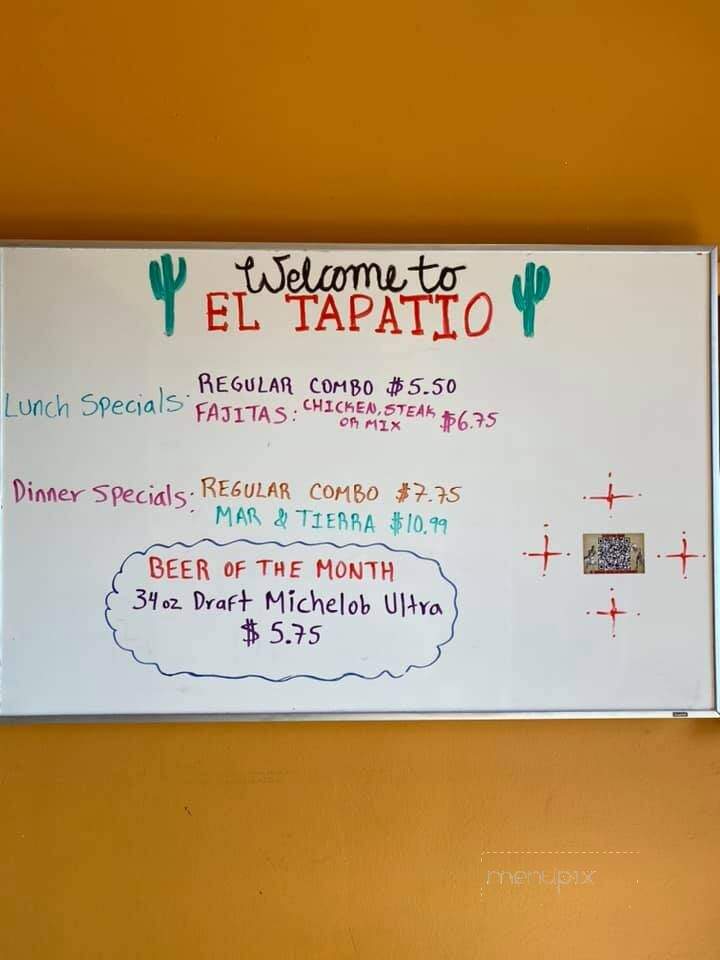 Welcome to
EL TAPATIO
Lunch Specials: REGULAR COMBO $5.50
FAJITAS: CHICKEN, STEAK OR MIX $6.75
Dinner Specials: REGULAR COMBO $7.75
MAR & TIERRA $10.99
BEER OF THE MONTH
34oz Draft Michelob Ultra
$5.75
menupix